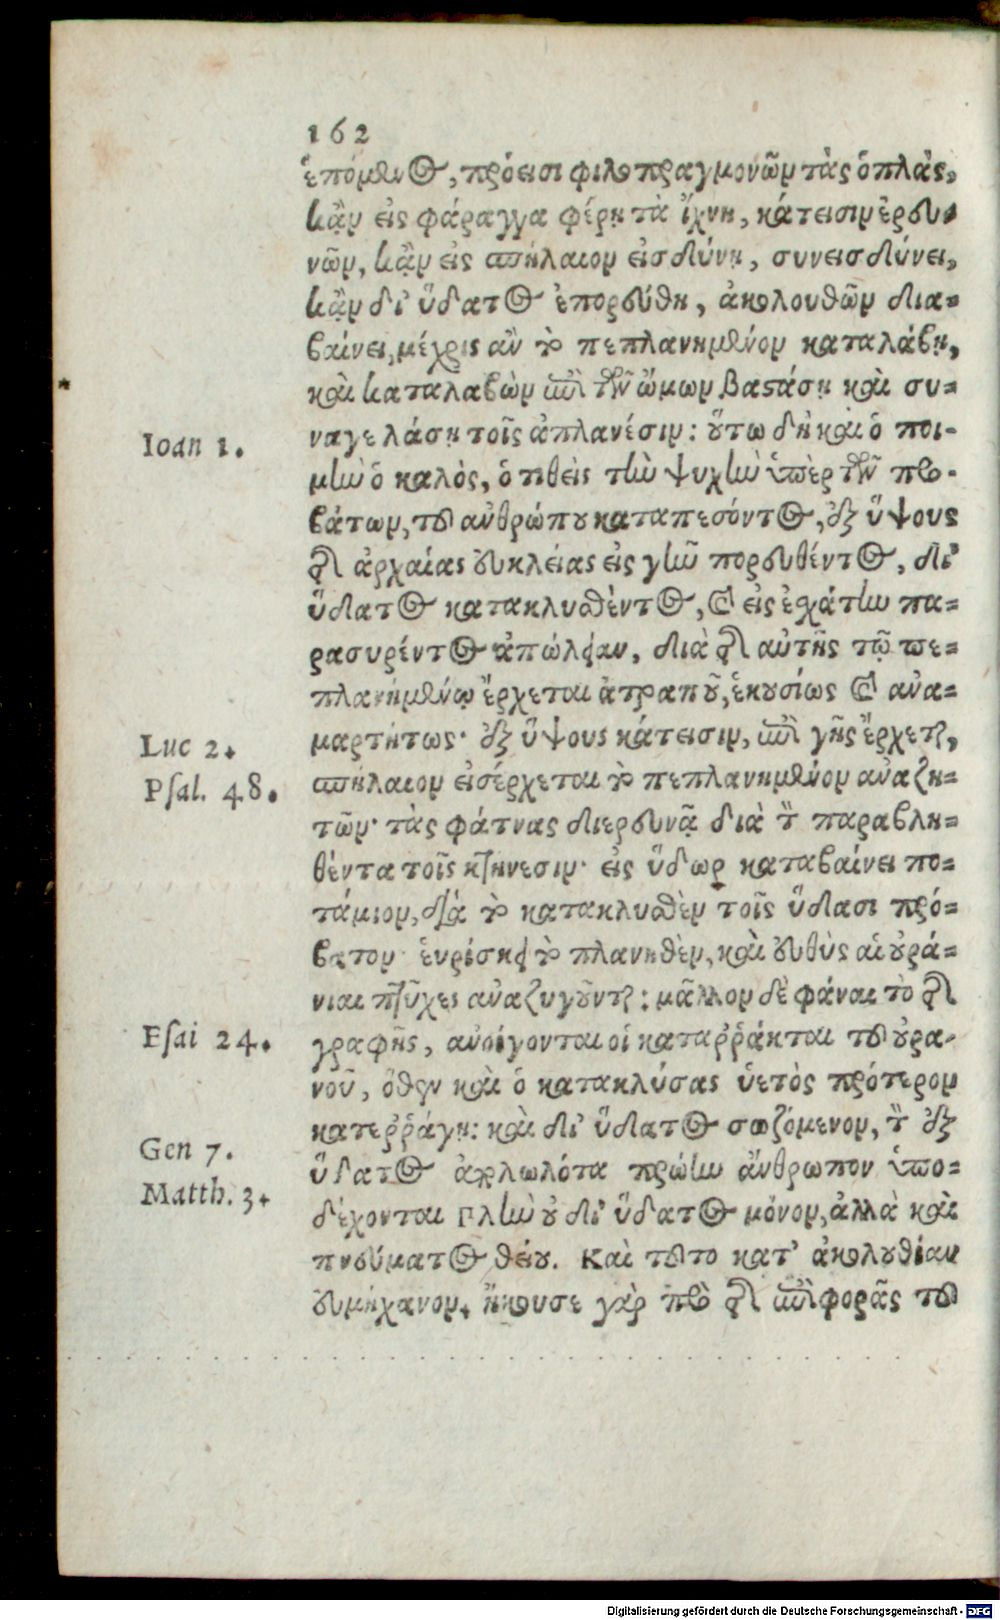 162
ἑπόμενος, πρόεισι φιλοπραγμονῶν τὰς ὁπλὰς,
κἂν εἰς φάραγγα φέρῃ τὰ ἴχνη, κάτεισιν ἐρευ-
νῶν, κἂν εἰς σπήλαιον εἰσδύνῃ, συνεισδύνει,
κἂν δι' ὕδατος ἐπορεύθη, ἀκολουθῶν δια-
βαίνει, μέχρις ἂν τὸ πεπλανημένον καταλάβῃ,
καὶ καταλαβὼν ἐπὶ τῶν ὤμων βαστάσῃ καὶ συ-
ναγελάσῃ τοῖς ἀπλανέσιν: οὕτω δὴ καὶ ὁ ποι-
Ioan 1.
μὴν ὁ καλὸς, ὁ τιθεὶς τὴν ψυχὴν ὑπὲρ τῶν προ-
βάτων, τοῦ ἀνθρώπου καταπεσόντος, ἐξ ὕψους
τῆς ἀρχαίας εὐκλείας εἰς γῆν πορευθέντος, δι'
ὕδατος κατακλυσθέντος, καὶ εἰς ἐσχάτην πα-
ρασυρέντος ἀπώλειαν, διὰ τῆς αὐτῆς τῷ πε-
πλανημένῳ ἔρχεται ἀτραποῦ, ἑκουσίως καὶ ἀνα-
μαρτήτως· ἐξ ὕψους κάτεισιν, ἐπὶ γῆς ἔρχεται,
Luc 2.
σπήλαιον εἰσέρχεται τὸ πεπλανημένον ἀναζη-
Psal. 48.
τῶν· τὰς φάτνας διερευνᾷ διὰ τὸν παραβλη-
θέντα τοῖς κτήνεσιν· εἰς ὕδωρ καταβαίνει πο-
τάμιον, διὰ τὸ κατακλυσθὲν τοῖς ὕδασι πρό-
βατον εὑρίσκει τὸ πλανηθὲν, καὶ εὐθὺς αἱ οὐρά-
νιαι πτύχες ἀναζυγοῦνται: μᾶλλον δὲ φάναι τὸ τῆς
γραφῆς, ἀνοίγονται οἱ καταῤῥάκται τοῦ οὐρα-
Esai 24.
νοῦ, ὅθεν καὶ ὁ κατακλύσας ὑετὸς πρότερον
κατεῤῥάγη: καὶ δι' ὕδατος σωζόμενον, τὸν ἐξ
Gen 7.
ὕδατος ἀπολωλότα πρώην ἄνθρωπον ὑπο-
Matth. 3.
δέχονται πλὴν οὐ δι' ὕδατος μόνον, ἀλλὰ καὶ
πνεύματος θείου. Καὶ τοῦτο κατ' ἀκολουθίαν
εὐμήχανον. ἤκουσε γὰρ πρὸ τῆς ἐπιφορᾶς τοῦ
Digitalisierung gefördert durch die Deutsche Forschungsgemeinschaft - DFG